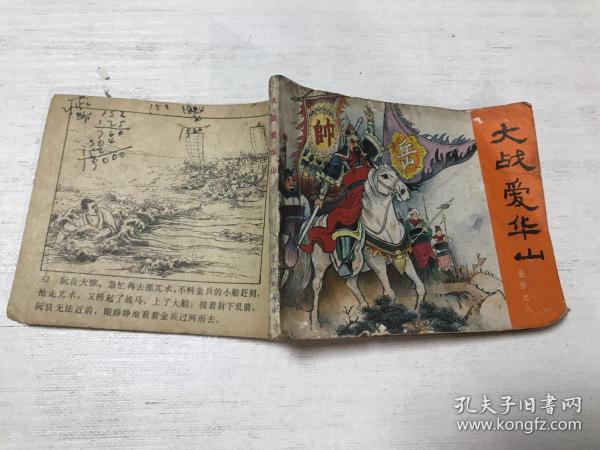 大战爱华山
岳传之六
帥
岳
大战爱华山
152
125
760
304
152
19000
82 阮良大惊，急忙再去抓兀术，不料金兵的小船赶到，
抢走兀术，又捞起了战马，上了大船。接着射下乱箭，
阮良无法近前，眼睁睁地看着金兵过河而去。
孔夫子旧书网
www.kongfz.com